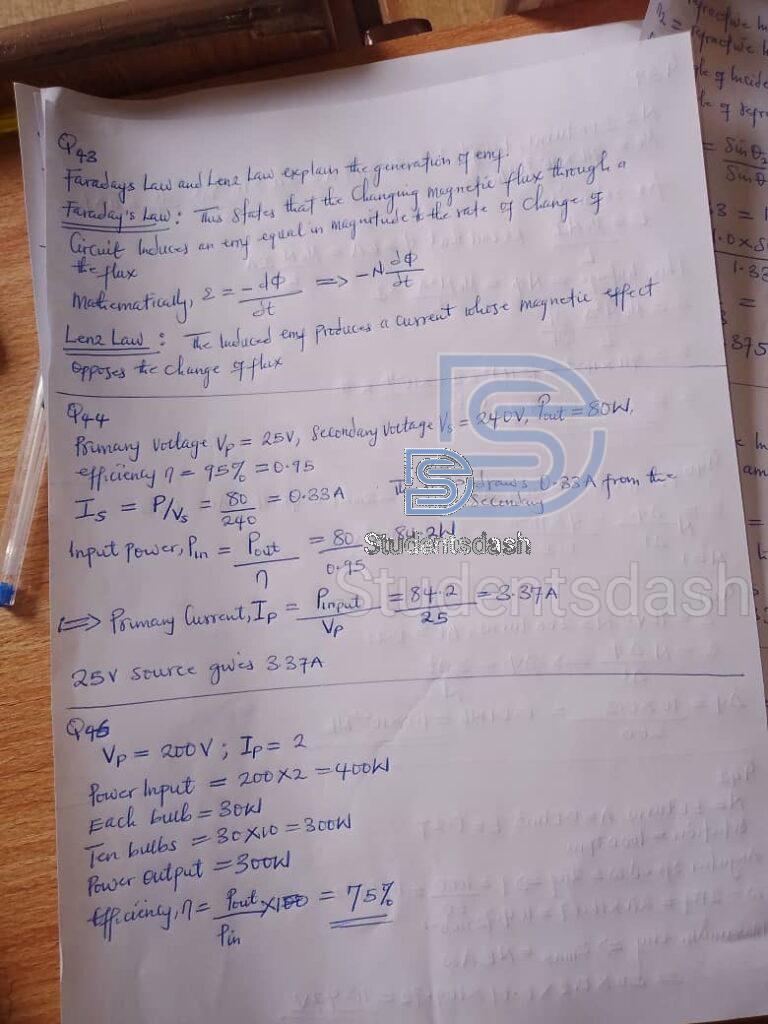 Q43
Faradays Law and Lenz Law explain the generation of emf.
Faraday's Law: This states that the changing magnetic flux through a
Circuit Induces an emf equal in magnitude to the rate of change of
the flux
Mathematically, ε = -dΦ/dt ⟹ -N dΦ/dt
Lenz Law: The Induced emf produces a current whose magnetic effect
opposes the change of flux
Q44
Primary Voltage Vp = 25V, Secondary Voltage Vs = 240V, Pout = 80W,
efficiency η = 95% = 0.95
Is = P/Vs = 80/240 = 0.33A draws 0.33A from the
Secondary
Input power, Pin = Pout/η = 80/0.95 84.2W
Studentsdash
Studentsdash
⟹ Primary Current, Ip = Pinput/Vp = 84.2/25 = 3.37A
25V source gives 3.37A
Q45
Vp = 200V; Ip = 2
Power Input = 200×2 = 400W
Each bulb = 30W
Ten bulbs = 30×10 = 300W
Power output = 300W
Efficiency, η = Pout/Pin ×100 = 75%
refractive
n2 = refractive
of Incide
of refra
= Sinθ2
Sinθ
1.0×S
1.33
=
.375